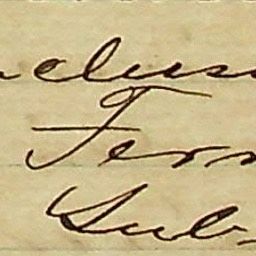 nclus
Ferr
Sub